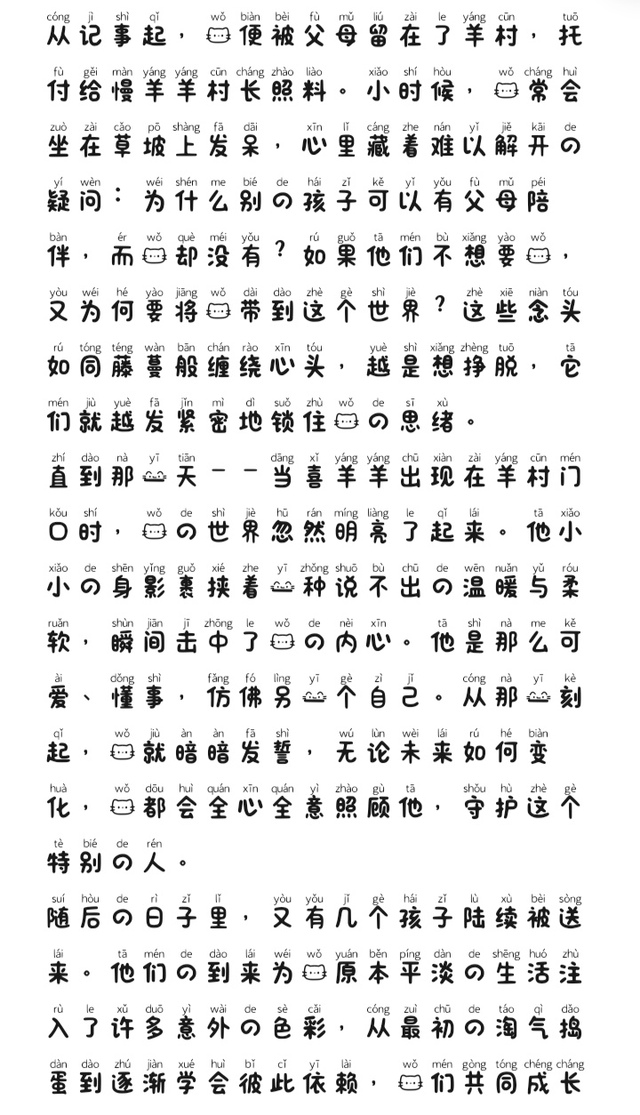 cóng jì shì qǐ wǒ biàn bèi fù mǔ liú zài le yáng cūn tuō
从记事起，便被父母留在了羊村，托
fù gěi màn yáng yáng cūn cháng zhào liào xiǎo shí hòu wǒ cháng huì
付给慢羊羊村长照料。小时候，常会
zuò zài cǎo pō shàng fā dāi xīn lǐ cáng zhe nán yǐ jiě kāi de
坐在草坡上发呆，心里藏着难以解开の
yí wèn wéi shén me bié de hái zǐ kě yǐ yǒu fù mǔ péi
疑问：为什么别の孩子可以有父母陪
bàn ér wǒ què méi yǒu rú guǒ tā mén bù xiǎng yào wǒ
伴，而却没有？如果他们不想要，
yòu wéi hé yào jiāng wǒ dài dào zhè gè shì jiè zhè xiē niàn tóu
又为何要将带到这个世界？这些念头
rú tóng téng wàn bān chán rào xīn tóu yuè shì xiǎng zhèng tuō tā
如同藤蔓般缠绕心头，越是想挣脱，它
mén jiù yuè fā jǐn mì dì suǒ zhù wǒ de sī xù
们就越发紧密地锁住の思绪。
zhí dào nà yī tiān dāng xǐ yáng yáng chū xiàn zài yáng cūn mén
直到那天——当喜羊羊出现在羊村门
kǒu shí wǒ de shì jiè hū rán míng liàng le qǐ lái tā xiǎo
口时，の世界忽然明亮了起来。他小
xiǎo de shēn yǐng guǒ xié zhe yī zhǒng shuō bù chū de wēn nuǎn yǔ róu
小の身影裹挟着种说不出の温暖与柔
ruǎn shùn jiān jī zhōng le wǒ de nèi xīn tā shì nà me kě
软，瞬间击中了の内心。他是那么可
ài dǒng shì fǎng fó lìng yī gè zì jǐ cóng nà yī kè
爱、懂事，仿佛另个自己。从那刻
qǐ wǒ jiù àn àn fā shì wú lùn wèi lái rú hé biàn
起，就暗暗发誓，无论未来如何变
huà wǒ dōu huì quán xīn quán yì zhào gù tā shǒu hù zhè gè
化，都会全心全意照顾他，守护这个
tè bié de rén
特别の人。
suí hòu de rì zǐ lǐ yòu yǒu jǐ gè hái zǐ lù xù bèi sòng
随后の日子里，又有几个孩子陆续被送
lái tā mén de dào lái wéi wǒ yuán běn píng dàn de shēng huó zhù
来。他们の到来为原本平淡の生活注
rù le xǔ duō yì wài de sè cǎi cóng zuì chū de táo qì dǎo
入了许多意外の色彩，从最初の淘气捣
dàn dào zhú jiàn xué huì bǐ cǐ yī lài wǒ mén gòng tóng chéng cháng
蛋到逐渐学会彼此依赖，们共同成长